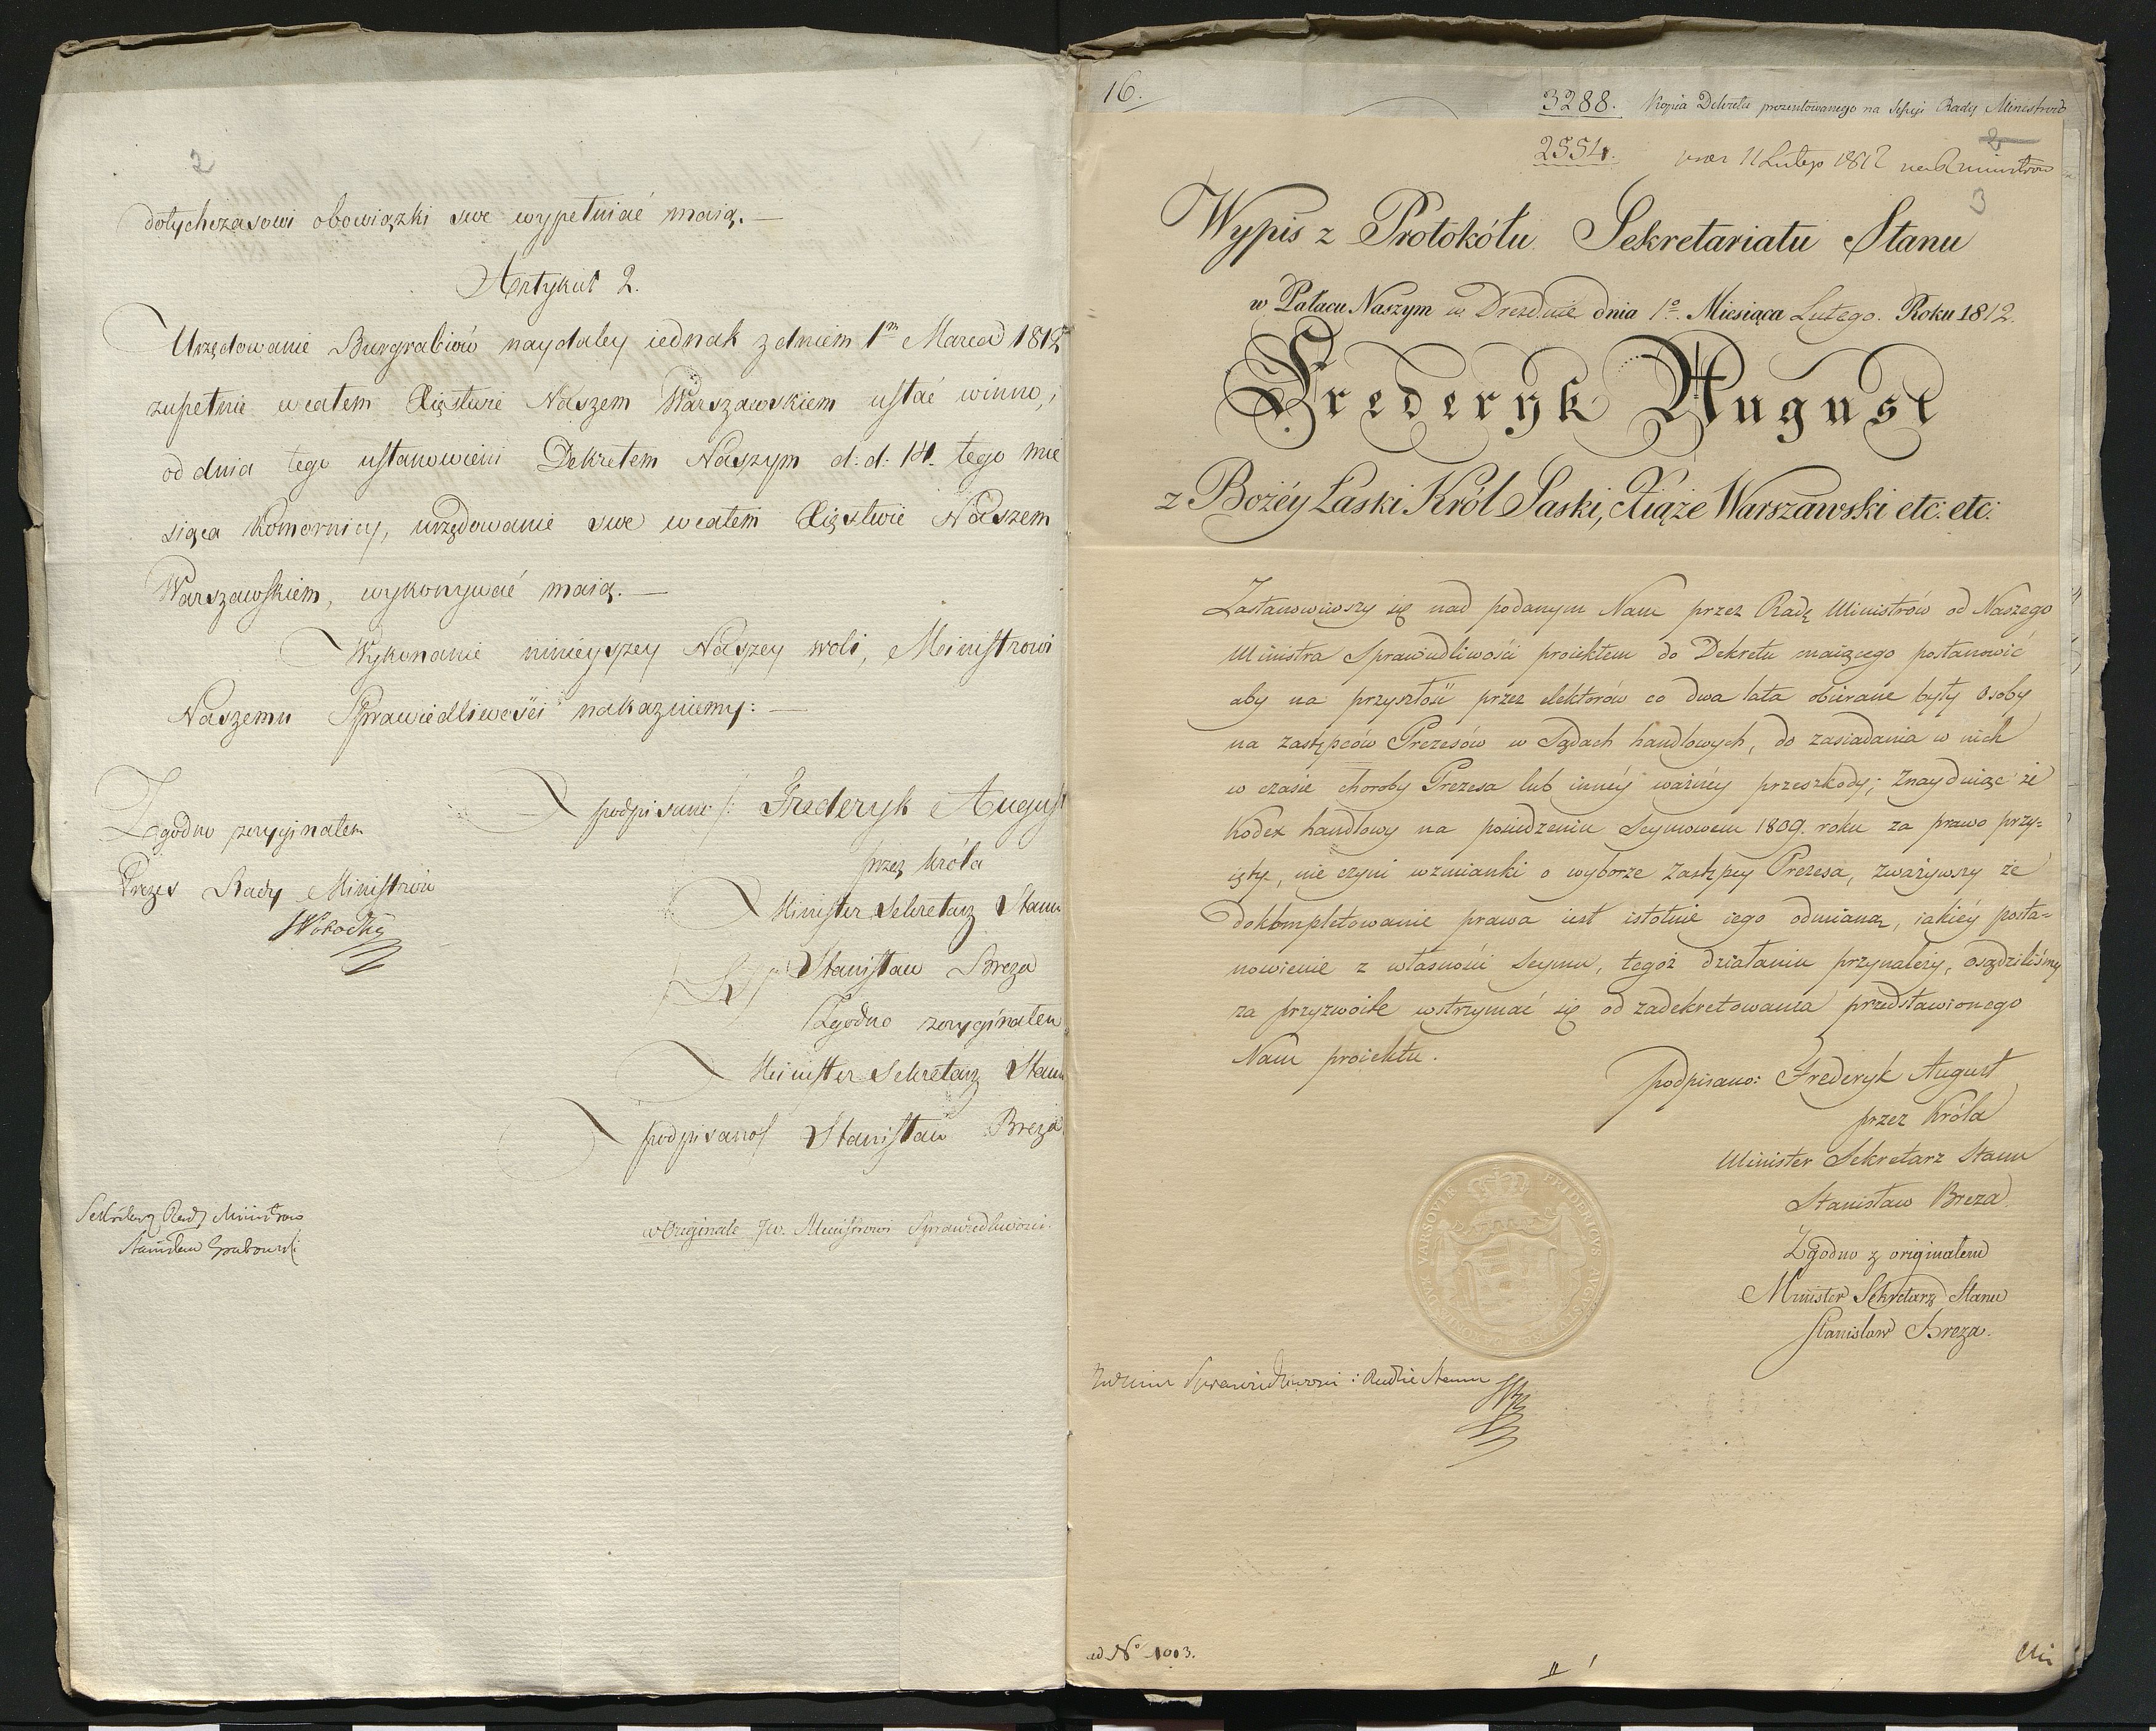 2
dotychczasowi obowiązki swe wypełniać maią. —
Artykuł 2.
Urzędowanie Burgrabiów naydaley iednak z dniem 1m Marca 1812
zupełnie w całem Xięstwie Naszem Warszawskiem ustać winno,
od dnia tego ustanowieni Dekretem Naszym d: d: 14. tego mie
siąca Komornicy, urzędowanie swe w całem Xięstwie Naszem
Warszawskiem, wykonywać maią. —
Wykonanie ninieyszey Naszey woli, Ministrowi
Naszemu Sprawiedliwości nakazuiemy: —
podpisano /: Frederyk August
przez Króla
Minister Sekretarz Stanu
Stanisław Breza
Zgodno z oryginałem
Minister Sekretarz Stanu
podpisano/ Stanisław Breza
Zgodno z oryginałem
Prezes Rady Ministrów
Sekretarz Rady Ministrow
Stanisław Grabowski
w Originale Jw. Ministrowi Sprawiedliwości
16.
3288. Kopia Dekretu prezentowanego na Sessyi Rady Ministrów
2554. 11 Lutego 1812
2
3
Wypis z Protokółu Sekretariatu Stanu
w Pałacu Naszym w Dreznie dnia 1o Miesiąca Lutego. Roku 1812.
Frederyk August
z Bożéy Łaski Król Saski, Xiąże Warszawski etc: etc:
Zastanowiwszy się nad podanym Nam przez Radę Ministrów od Naszego
Ministra Sprawiedliwości proiektem do Dekretu maiącego postanowić
aby na przyszłość przez elektorów co dwa lata obierane były Osoby
na zastępców Prezesów w Sądach handlowych, do zasiadania w nich
w czasie choroby Prezesa lub innéy ważnéy przeszkody; Znayduiąc że
Kodex handlowy na posiedzeniu Seymowem 1809. roku za prawo przy=
ięty, nie czyni wzmianki o wyborze Zastępcy Prezesa, zważywszy że
dokompletowanie prawa iest istotnie iego odmianą, iakiéy posta=
nowienie z własności Seymu, tegoż działaniu przynależy, osądziliśmy
za przyzwoite wstrzymać się od zadekretowania przedstawionego
Nam proiektu.
podpisano: Frederyk August
przez Króla
Minister Sekretarz Stanu
Stanisław Breza.
Zgodno z originałem
Minister Sekretarz Stanu
Stanisław Breza.
FRIDERICVS AVGVSTVS REX SAXONIAE DVX VARSOVIAE
Sprawiedliwości i Radzie Stanu
ad No 1003.